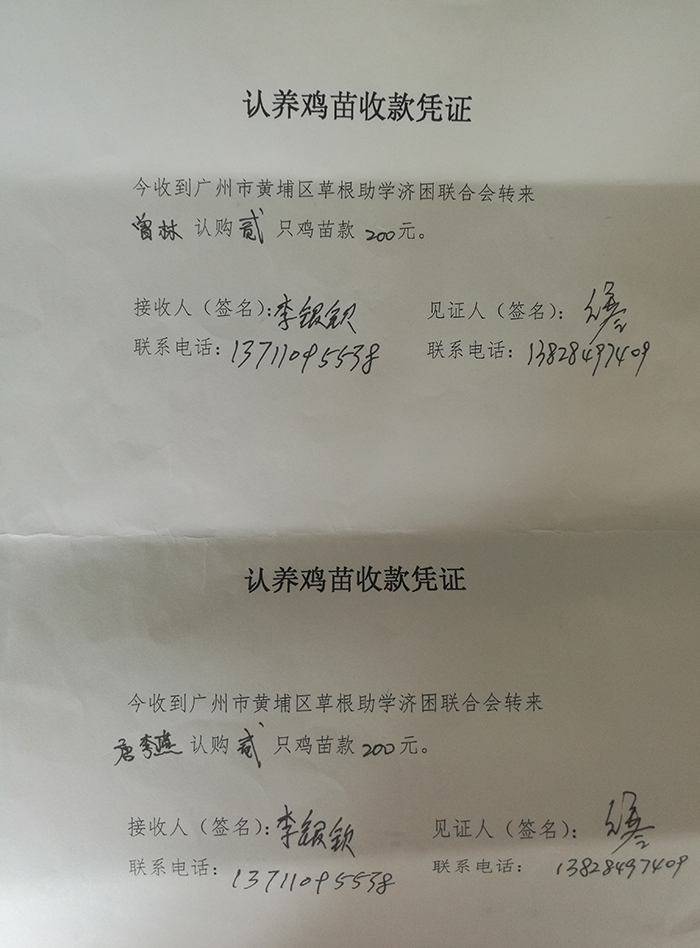 认养鸡苗收款凭证
今收到广州市黄埔区草根助学济困联合会转来
曾林 认购 贰 只鸡苗款 200元。
接收人（签名）：李银钦 见证人（签名）：
联系电话：13711095538 联系电话：13828497409
认养鸡苗收款凭证
今收到广州市黄埔区草根助学济困联合会转来
唐李燕 认购 贰 只鸡苗款 200元。
接收人（签名）：李银钦 见证人（签名）：
联系电话：13711095538 联系电话：13828497409